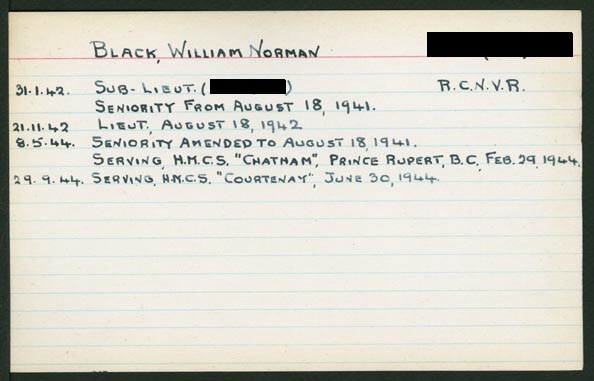 BLACK, WILLIAM NORMAN
31.1.42. SUB-LIEUT. ( ) R.C.N.V.R.
SENIORITY FROM AUGUST 18, 1941.
21.11.42 LIEUT., AUGUST 18, 1942
8.5.44. SENIORITY AMENDED TO AUGUST 18, 1941.
SERVING, H.M.C.S. "CHATHAM", PRINCE RUPERT, B.C., FEB. 29, 1944.
29.9.44. SERVING, H.M.C.S. "COURTENAY", JUNE 30, 1944.